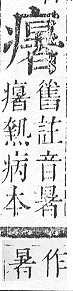 舊註音暑
熱病本
作
暑